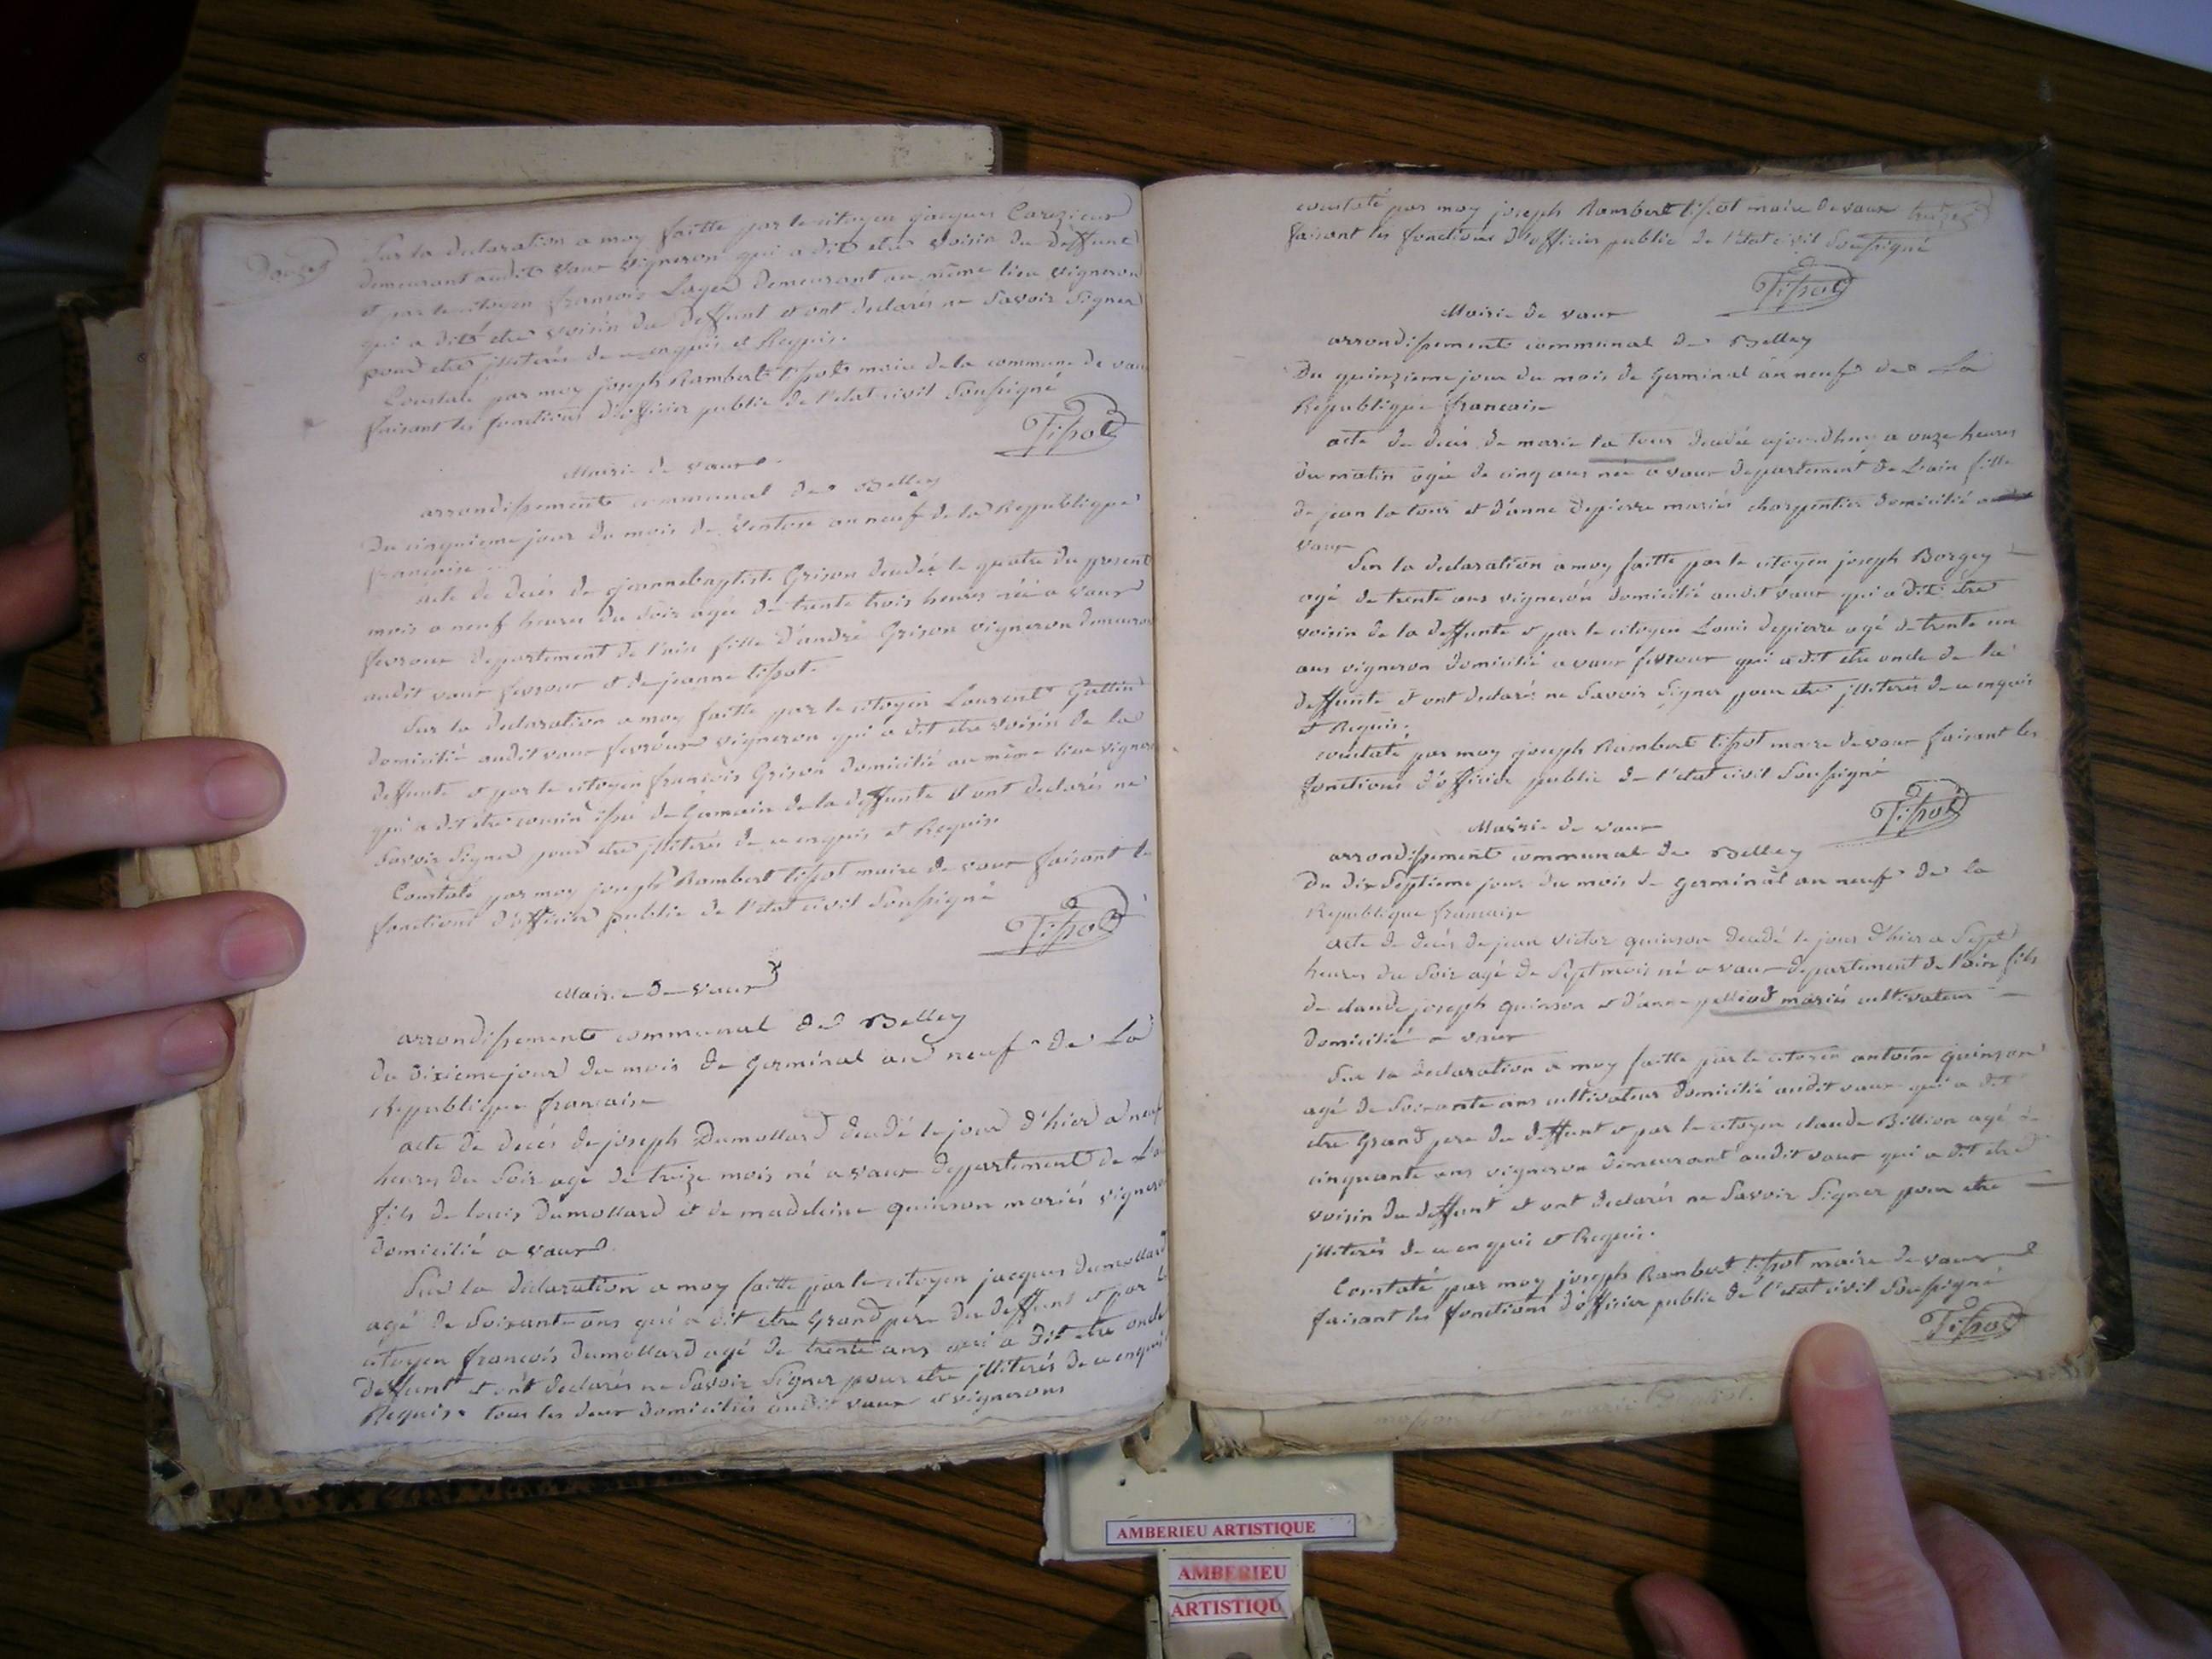 Douze
Sur la declaration a moy faitte par le citoyen jacques Carezieux
demeurant audit vaux vigneron qui a dit etre voisin du deffunt
et par le citoyen francois Loyer demeurant au même lieu vigneron
qui a dit etre voisin du deffunt et ont declarés ne savoir signer
pour etre jlliterés de ce enquis et Requis.
Constaté par moy joseph Rambert tissot maire de la commune de vaux
faisant les fonctions d'officier public de l'état civil soussigné
Tissot
Mairie de vaux.
arrondissement communal de Belley
Du cinquieme jour du mois de Ventose an neuf de la Republique
francaise
acte de decès de jeannebaptiste Grison decedée le quatre du present
mois a neuf heures du soir agée de trente trois heures née a vaux
fevroux departement de l'ain fille d'andré Grison vigneron demeurant
audit vaux fevroux et de jeanne tissot.
Sur la declaration a moy faitte par le citoyen Laurent Gullin
domicilié audit vaux fevroux vigneron qui a dit etre voisin de la
deffunte et par le citoyen francois Grison domicilié au même lieu vigneron
qui a dit etre cousin issu de Germain de la deffunte et ont declarés ne
savoir signer pour etre jlliterés de ce enquis et Requis.
Constaté par moy joseph Rambert tissot maire de vaux faisant les
fonctions d'officier public de l'état civil soussigné
Tissot
Mairie de vaux
arrondissement communal de Belley
du dixieme jour du mois de Germinal an neuf de La
Republique francaise
acte de decès de joseph Dumollard decedé le jour d'hier a neuf
heures du soir agé de treize mois né a vaux departement de L'ain
fils de louis Dumollard et de madeleine quinson mariés vigneron
domicilié a vaux.
Sur la declaration a moy faitte par le citoyen jacques dumollard
agé de soixante ans qui a dit etre Grand pére du deffunt et par le
citoyen francois dumollard agé de trente ans qui a dit etre oncle
deffunt et ont declarés ne savoir signer pour etre jlliterés de ce enquis
Requis. tous les deux domiciliés audit vaux et vignerons
constaté par moy joseph Rambert tissot maire de vaux treize
faisant les fonctions d'officier public de l'état civil soussigné
Tissot
Mairie de vaux
arrondissement communal de Belley
Du quinzieme jour du mois de Germinal an neuf de La
Republique francaise
acte de decès de marie la tour decedée ajourdhuy a onze heures
du matin agée de cinq ans née a vaux departement de Lain fille
de jean la tour et d'anne depierre mariés charpentier domicilié a
vaux
Sur la declaration a moy faitte par le citoyen joseph Borgey
agé de trente ans vigneron domicilié audit vaux qui a dit etre
voisin de la deffunte et par le citoyen Louis depierre agé de trente un
ans vigneron domicilié a vaux fevroux qui a dit etre oncle de la
deffunte et ont declarés ne savoir signer pour etre jlliterés de ce enquis
et Requis.
constaté par moy joseph Rambert tissot maire de vaux faisant les
fonctions d'officier public de l'état civil soussigné
Tissot
Mairie de vaux
arrondissement communal de Belley
Du dix septieme jour du mois de germinal an neuf de la
Republique francaise
acte de decès de jean victor quinson decedé le jour d'hier a sept
heures du soir agé de sept mois né a vaux departement de l'ain fils
de claude joseph quinson et d'anne pelliod mariés cultivateur
domicilié a vaux
Sur la declaration a moy faitte par le citoyen antoine quinson
agé de soixante ans cultivateur domicilié audit vaux qui a dit
etre Grand pere du deffunt et par le citoyen claude Billion agé de
cinquante ans vigneron demeurant audit vaux qui a dit etre
voisin du deffunt et ont declarés ne savoir signer pour etre
jlliterés de ce enquis et Requis.
Constaté par moy joseph Rambert tissot maire de vaux
faisant les fonctions d'officier public de l'état civil soussigné
Tissot
AMBERIEU ARTISTIQUE
AMBERIEU
ARTISTIQU